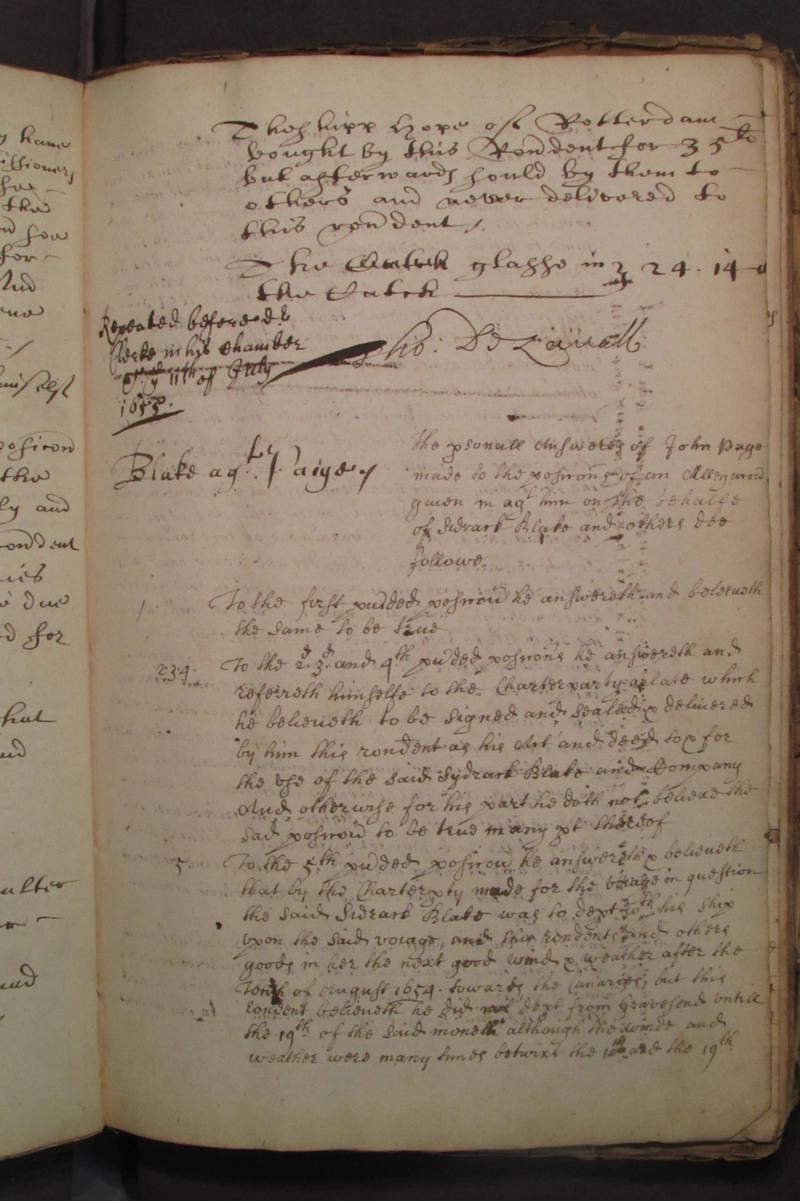 y have
the
for
And
the
ly and
rondent
ies
due
d for
that
and
ulter
and
The shipp Hope of Rotterdam
bought by this Rondent for 35 li
but afterwards sould by them to
others and never delivered to
this rondent /.
The glasse in 24 . 14
the Catch
Repeated before doct
Clerke in his chamber
11th of July
1655.
Tho: De Lavall
Blake agt. Paige /
The psonall Answeres of John Page
made to the posicons of an Allegacoin
given in agt him on the behalfe
of Sidrack Blake and others doe
followe.
1 To the first pudded posicoin he answereth and beleeueth
the same to be true
2.3.4. To the 2d. 3d. and 4th pudded posicons he answereth and
referreth himselfe to the Charterparty arlate which
he believeth to be signed and sealed & delivered
by him this rondent as his Act and deed to & for
the vse of the said Sydrack Blake and Company
And otherwise for his part he doth not believe the
said posicoin to be true in any pt thereof
5. To the 5th pudded posicoin he answereth & believeth
that by the Charterpty made for the voiage in question
the said Sidrack Blake was to dept with his ship
vpon the said voiage, and this rondents and others
goods in her the next good wind & weather after the
Tenth of August 1654. towards the Canaries, but this
rondent believeth he did not dept from Gravesend vntill
the 19th. of the said moneth although the winde and
weather were many times betwixt the 10th and the 19th.